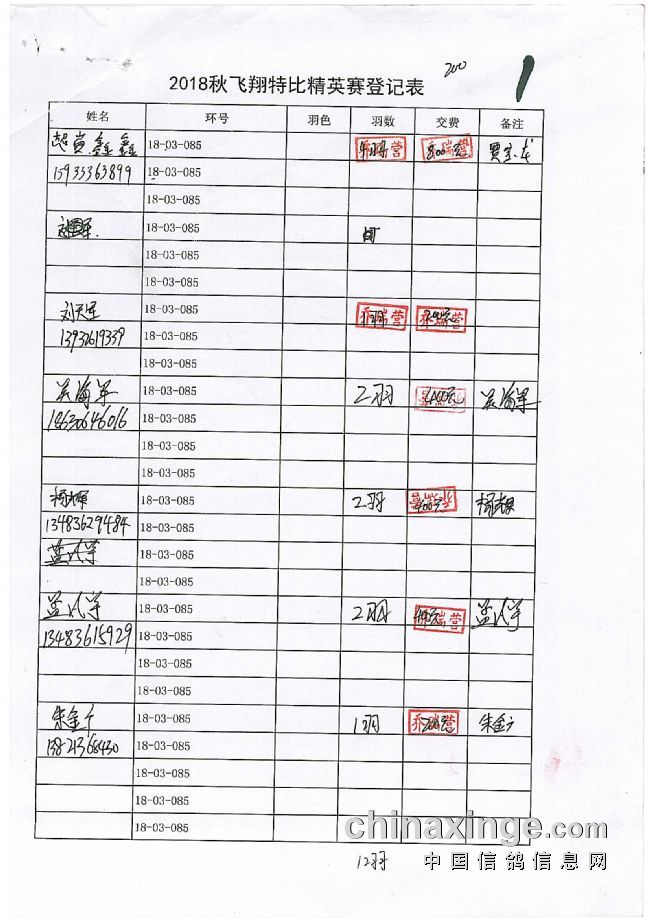 200
1
2018秋飞翔特比精英赛登记表
姓名 环号 羽色 羽数 交费 备注
18-03-085
15933363899 18-03-085
18-03-085
18-03-085
18-03-085
18-03-085
刘天军 18-03-085
13932619339 18-03-085
18-03-085
吴海军 18-03-085 2羽 吴海军
18630646016 18-03-085
18-03-085
18-03-085
18-03-085 2羽 400元
13483629484 18-03-085
孟以学 18-03-085
18-03-085
孟以学 18-03-085 2羽 孟以学
13483615929 18-03-085
18-03-085
18-03-085
朱金广 18-03-085 1羽 朱金广
18-03-085
18-03-085
18-03-085
18-03-085
12羽
chinaxinge.com
中国信鸽信息网